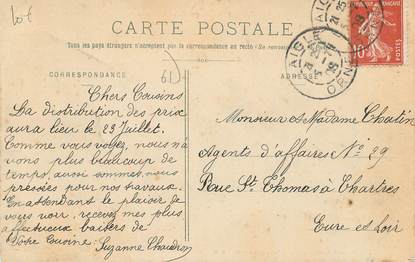 Lot
CARTE POSTALE
Tous les pays étrangers n'acceptent pas la correspondance au recto
CORRESPONDANCE
ADRESSE
61
LAIGLE
ORNE
10
Chers Cousins
La distribution des prix
aura lieu le 23 Juillet.
Comme vous voyez, nous n'a
vons plus beaucoup de
temps, aussi sommes nous
pressées pour nos travaux.
En attendant le plaisir de
vous voir, recevez mes plus
affectueux baisers de
Votre Cousine: Suzanne Chaudron
Monsieur et Madame Chatin
Agents d'affaires No 29
Rue St Thomas à Chartres
Eure et Loir